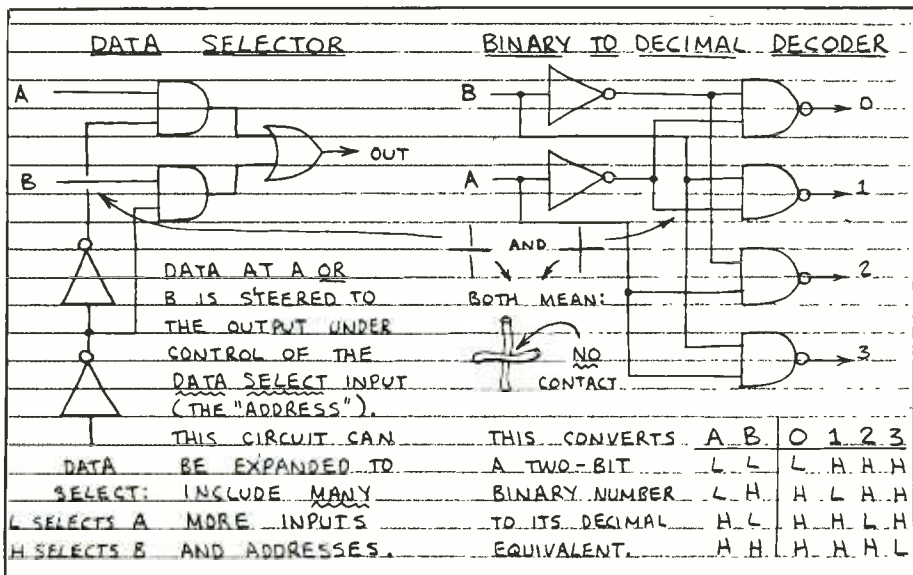 DATA SELECTOR
A
B
OUT
DATA AT A OR
B IS STEERED TO
THE OUTPUT UNDER
CONTROL OF THE
DATA SELECT INPUT
(THE "ADDRESS").
THIS CIRCUIT CAN
BE EXPANDED TO
INCLUDE MANY
MORE INPUTS
AND ADDRESSES.
DATA
SELECT:
L SELECTS A
H SELECTS B
BINARY TO DECIMAL DECODER
B
A
0
1
2
3
AND
BOTH MEAN:
NO
CONTACT
THIS CONVERTS
A TWO-BIT
BINARY NUMBER
TO ITS DECIMAL
EQUIVALENT.
A B 0 1 2 3
L L L H H H
L H H L H H
H L H H L H
H H H H H L